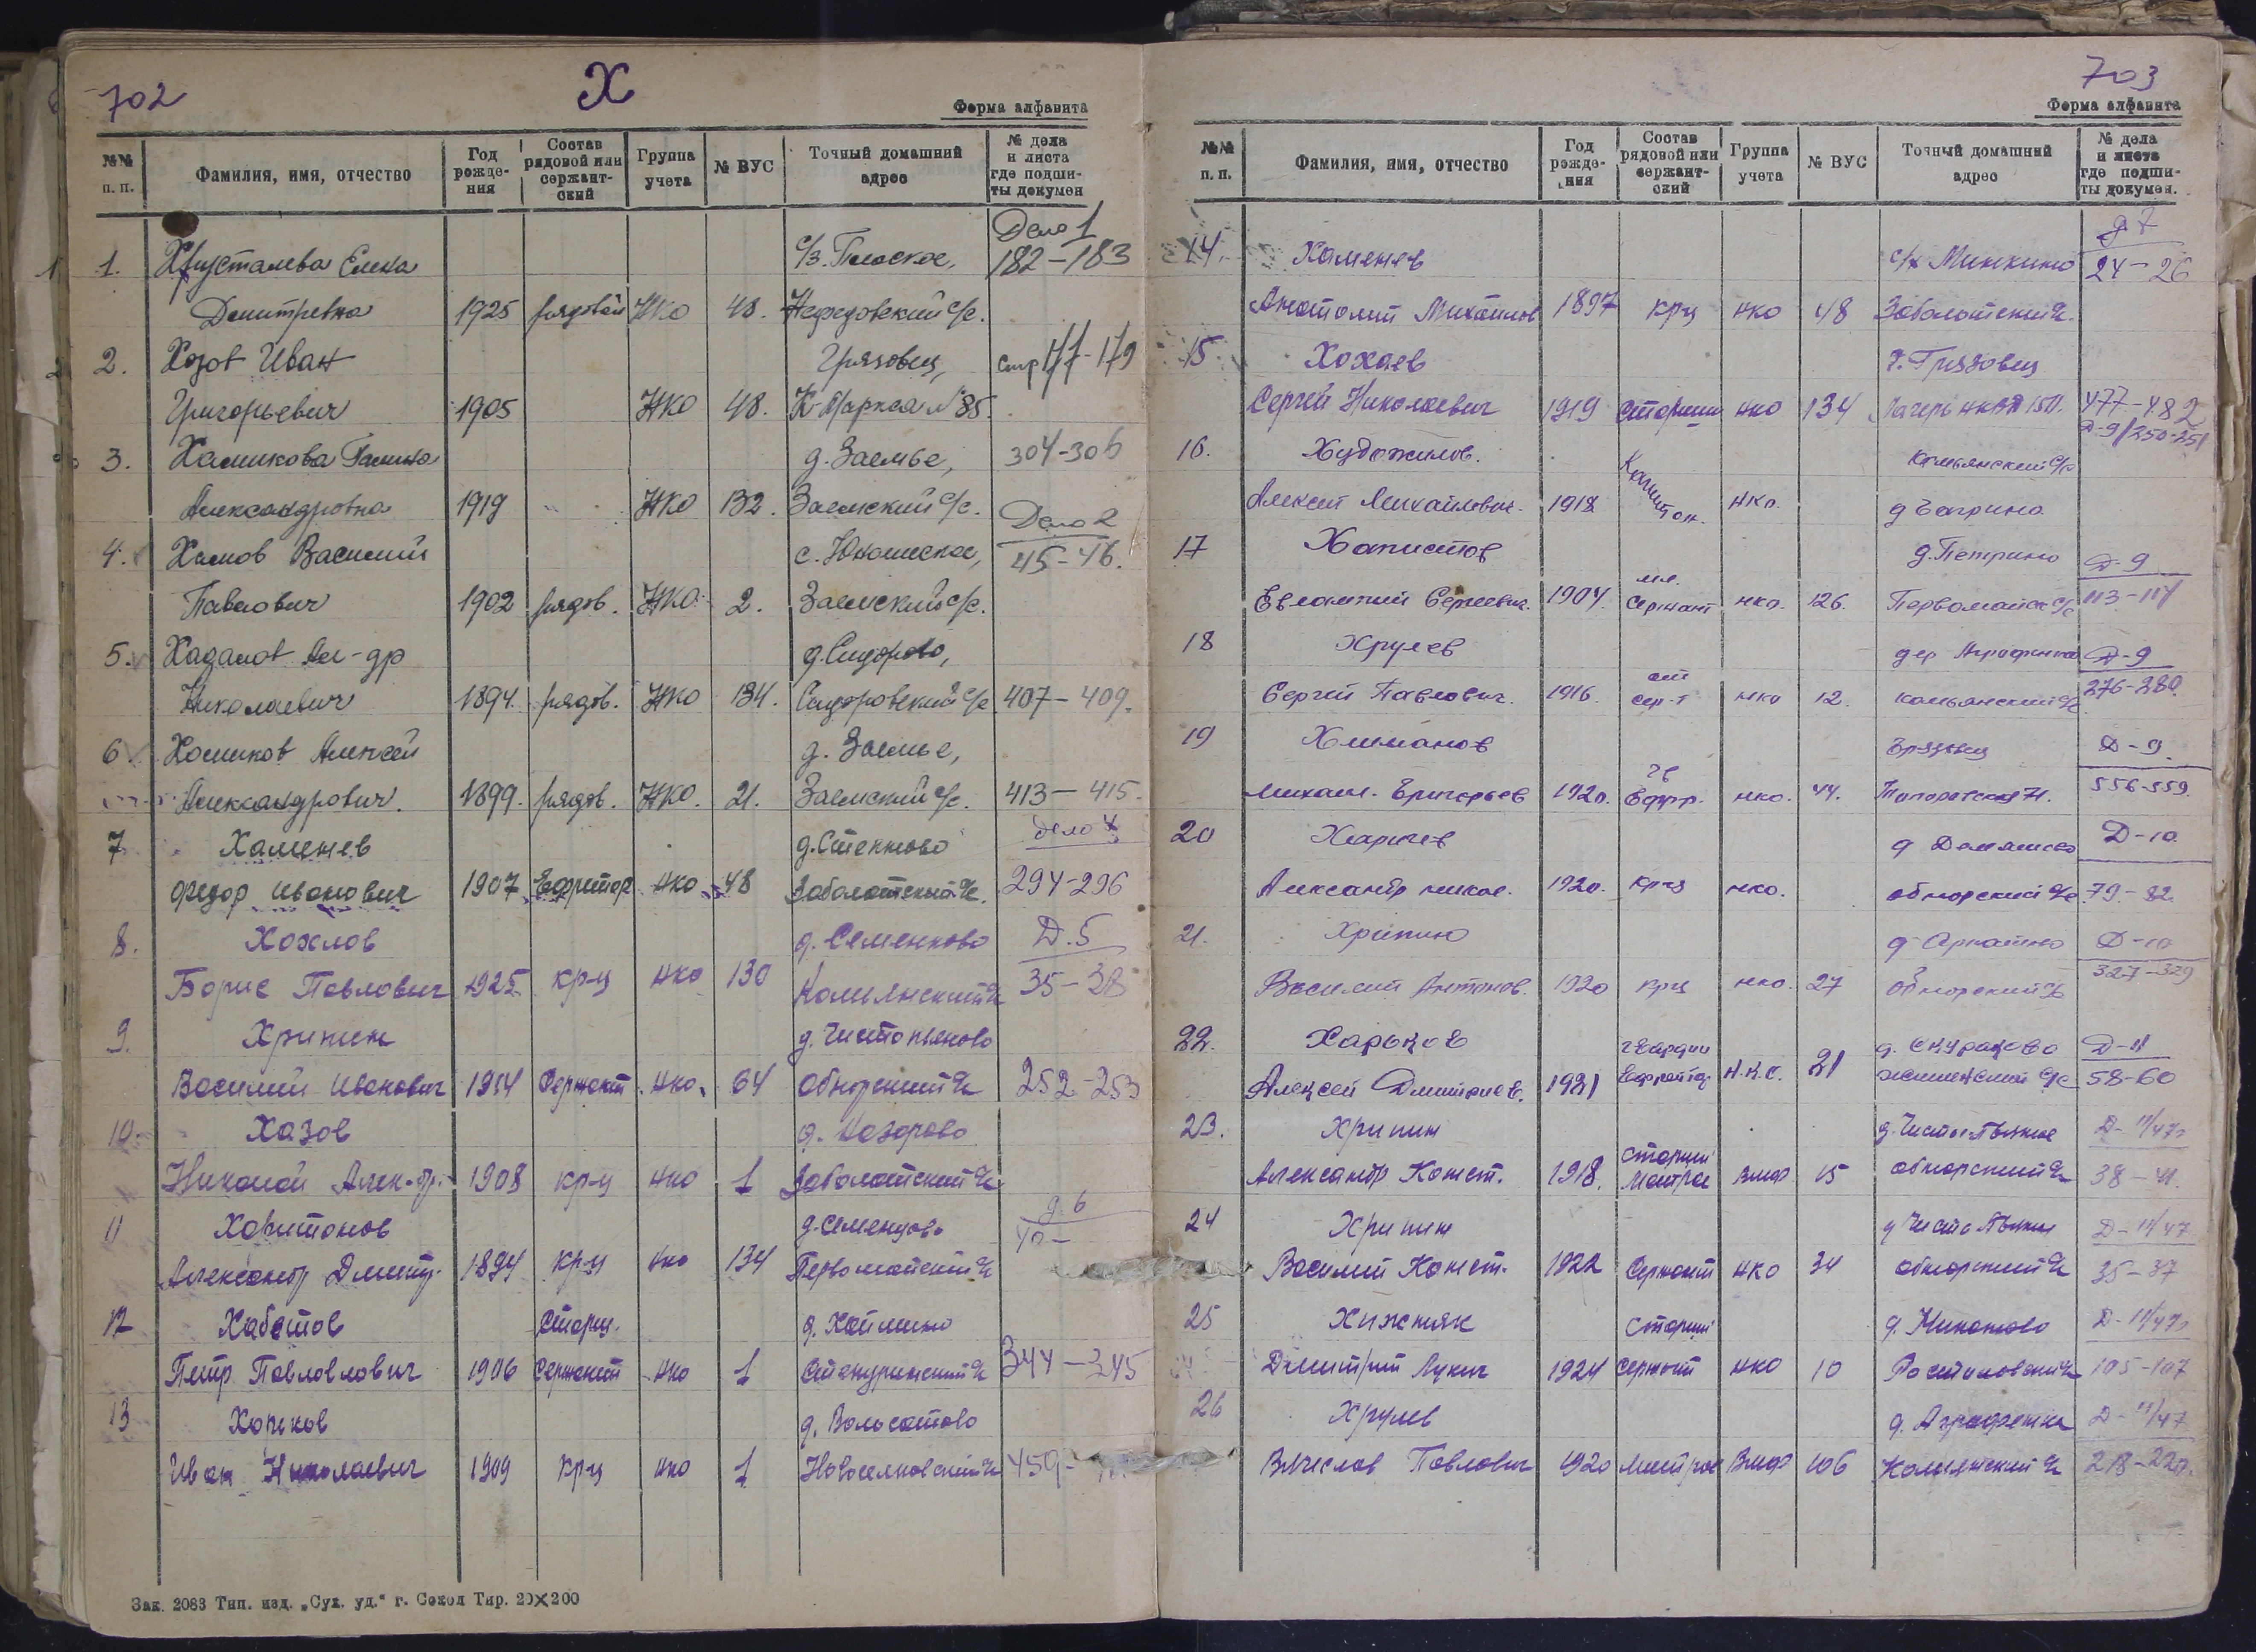 702
Х
Форма алфавита
№№ п. п. Фамилия, имя, отчество Год рожде-ния Состав рядовой или сержант-ский Группа учета № ВУС Точный домашний адрес № дела и листа где подши-ты докумен
Дело 1
1. Хрусталева Елена с/з. Плоское, 182-183
Дмитревна 1925 рядовой НКО 48. Нефедовский с/с.
2. Хозов Иван Грязовец, стр 177-179
Григорьевич 1905 НКО 48. К-Маркса №85.
3. Халикова Галина д. Заемье, 304-306
Александровна 1919 НКО 132. Заемский с/с.
Дело 2
4. Хамов Василий с. Юношеское, 45-46.
Павлович 1902 рядов. НКО 2. Заемский с/с.
5. Хадалов Ал-др д. Сидорово,
Николаевич 1894. рядов. НКО 134. Сидоровский с/с. 407-409.
6 Алексей д. Заемье,
Александрович. 1899. рядов. НКО. 21. Заемский с/с. 413-415.
7 Хаменев д. Стенково дело 4
Федор Иванович 1907 Ефрейтор НКО 48 Заболотский с/с. 294-296
8. Хохлов д. Семенково Д.5
Борис Павлович 1925 кр-ц НКО 130 Комьянский с/с 35-38
9. Хрипин д. Чистопьяново
Василий Иванович 1914 Сержант НКО. 64 Обнорский с/с 252-253
10. Хазов
Николай Алек-др. 1908 кр-ц НКО 1 Заболотский с/с
11 Харитонов д. Семенцово д. 6
Александр Дмитр. 1894 кр-ц НКО 134 Первомайский с/с 40-
12 Хабетов Старш.
Петр Павлович 1906 Сержант НКО 1 344-345
13 Хопков д. Волосатово
Иван Николаевич 1909 кр-ц НКО 1 Новоселковский с/с 459-
Зак. 2083 Тип. изд. „Сух. уд.“ г. Сокол Тир. 20×200
703
Форма алфавита
№№ п. п. Фамилия, имя, отчество Год рожде-ния Состав рядовой или сержант-ский Группа учета № ВУС Точный домашний адрес № дела и листа где подши-ты докумен.
д 7
14. Хаменев с/х Минкино 24-26
Анатолий Михайлов 1897 кр-ц НКО 48 Заболотский с/с.
15 Хохаев г. Грязовец
Сергей Николаевич 1919 Старшин НКО 134 Лагерь 477-482
Д-9/250-251
16. Художилов. Комьянский с/с
Алексей Михайлович. 1918 Капитан. НКО. д Багрино
17 Хапистов д. Петрино Д-9
Евлампий Сергеевич. 1904. мл. Сержант НКО. 126. Первомайск с/с 113-114
18 Хрулев дер Аграфенка Д-9
Сергей Павлович. 1916. ст сер-т НКО 12. Комьянский с/с 276-280.
19 Хлиманов Грязовец Д-9.
Михаил. Григорьев 1920. гв Ефр. НКО. 44. 556-559.
20 Харичев Д-10
Александр Никол. 1920. кр-ц НКО. Обнорский с/с 79-82.
21. Хрипин Д-10
Василий Антонов. 1920 кр-ц НКО. 27 Обнорский с/с 327-329
22. Харьков гвардии д. Скураково Д-11
Алексей Дмитриев. 1921 Ефрейтор Н.К.О. 21 58-60
23. Хрипин д. Д-11/47г
Александр Конст. 1918. старший Матрос ВМФ 15 Обнорский с/с 38-41.
24 Хрипин д Д-11/47
Василий Конст. 1922 Сержант НКО 34 Обнорский с/с 35-37
25 Хижняк Старший д. Никоново Д-11/47г
Дмитрий Лукич 1924 Сержант НКО 10 Ростиловский с/с 105-107
26 Хрулев д. Аграфенка Д-11/47
Вячеслав Павлович 1920 Матрос ВМФ 106 Комьянский с/с 218-220.